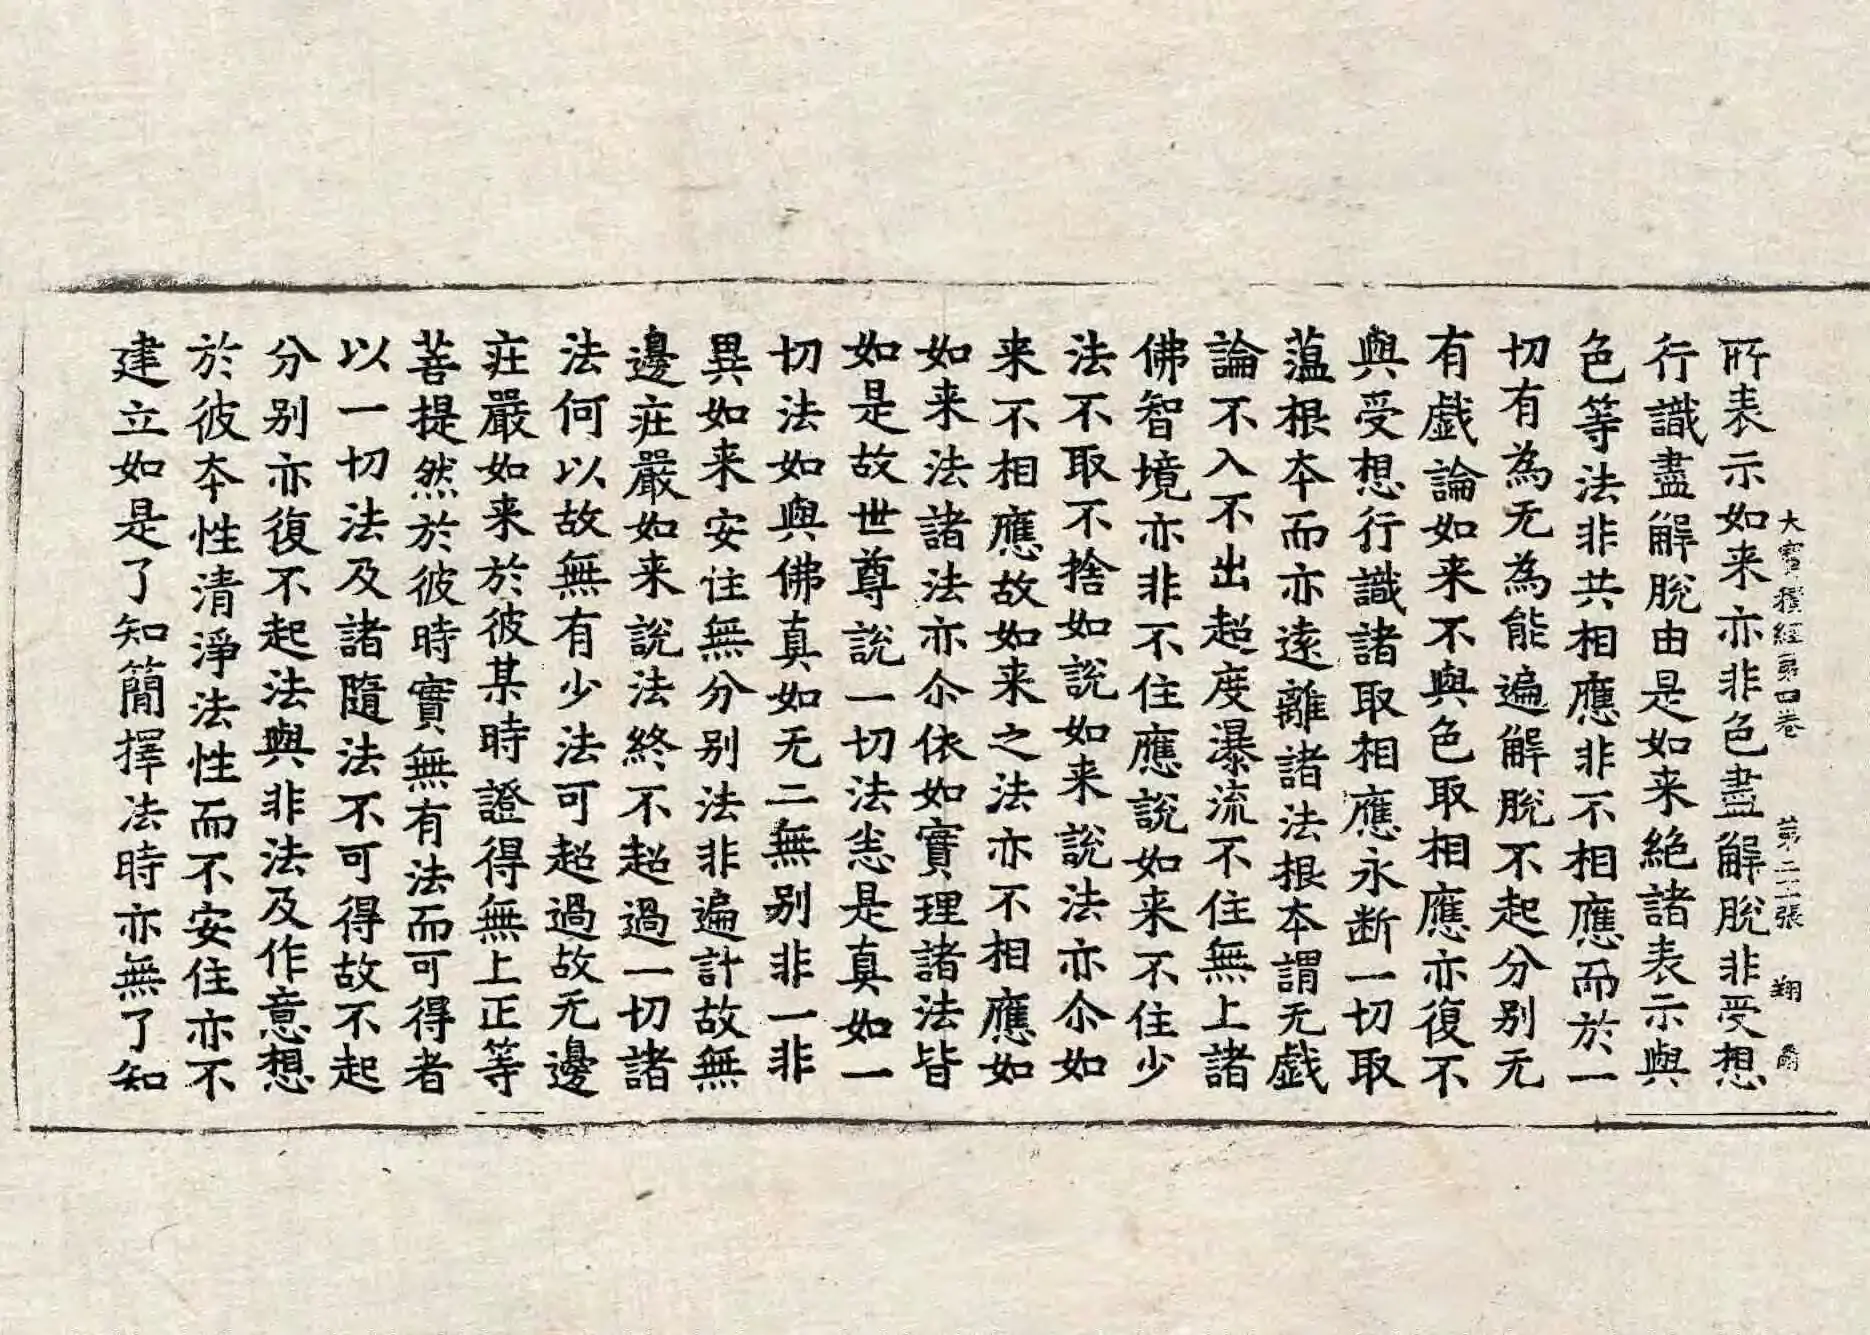 大寶積經第四卷 第二二張 翔
所表示如来亦非色盡解脫非受想
行識盡解脫由是如来絶諸表示與
色等法非共相應非不相應而於一
切有為无為能遍解脫不起分别无
有戲論如来不與色取相應亦復不
與受想行識諸取相應永断一切取
薀根本而亦遠離諸法根本謂无戲
論不入不出超度瀑流不住無上諸
佛智境亦非不住應說如来不住少
法不取不捨如說如来說法亦尒如
来不相應故如来之法亦不相應如
如来法諸法亦尒依如實理諸法皆
如是故世尊說一切法恙是真如一
切法如與佛真如无二無别非一非
異如来安住無分别法非遍計故無
邊莊嚴如来說法終不超過一切諸
法何以故無有少法可超過故无邊
莊嚴如来於彼某時證得無上正等
菩提然於彼時實無有法而可得者
以一切法及諸隨法不可得故不起
分别亦復不起法與非法及作意想
於彼夲性清淨法性而不安住亦不
建立如是了知簡擇法時亦無了知